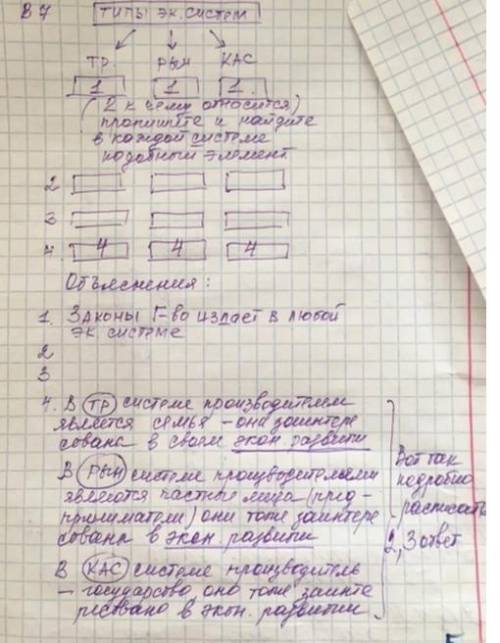 В 7 ТИПЫ ЭК. СИСТЕМ
ТР. РЫН КАС
1 1 1.
(2 к чему относится)
пропишите и найдите
в каждой системе
подобный элемент
2
3
4. 4 4 4
Объяснения:
1. Законы Г-во издает в любой
эк. системе
2
3
4. В ТР системе производителем
является семья - она заинтере
сована в своем экон. развитии
В РЫН системе производителями
являются частные лица (пред-
приниматели) они тоже заинтере
сованы в экон. развитии
В КАС системе производитель
- государство, оно тоже заинте
ресовано в экон. развитии
Вот так
подробно
расписать
2, 3 ответ